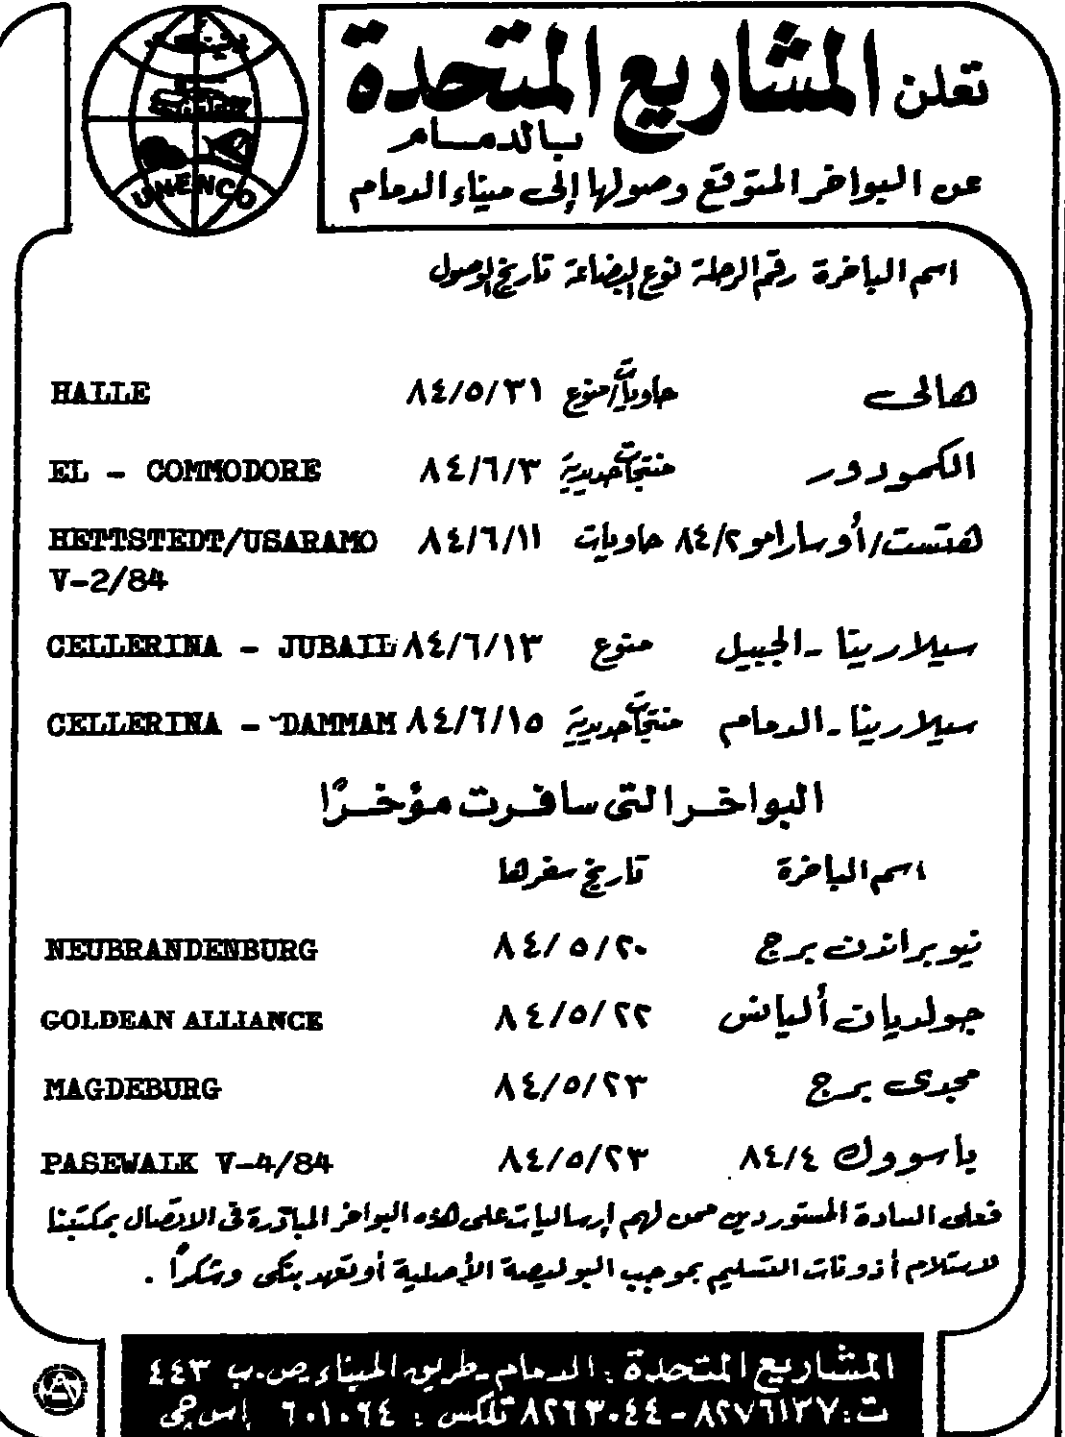 تعلن المشاريع المتحدة
بالدمام
عن البواخر المتوقع وصولها إلى ميناء الدمام
UNENCO
اسم الباخرة رقم الرحلة نوع البضاعة تاريخ الوصول
هالى حاويات/منوع ٨٤/٥/٣١ HALLE
الكمودور منتجات حديدية ٨٤/٦/٣ EL - COMMODORE
هتست/أوسارامو ٨٤/٢ حاويات ٨٤/٦/١١ HETTSTEDT/USARAMO
V-2/84
سيلارينا - الجبيل منوع ٨٤/٦/١٣ CELLERINA - JUBAIL
سيلارينا - الدمام منتجات حديدية ٨٤/٦/١٥ CELLERINA - DAMMAM
البواخر التى سافرت مؤخرًا
اسم الباخرة تاريخ سفرها
نيوبراندن برج ٨٤/٥/٢٠ NEUBRANDENBURG
جولديان أليانس ٨٤/٥/٢٢ GOLDEAN ALLIANCE
مجدى برج ٨٤/٥/٢٣ MAGDEBURG
باسووك ٨٤/٤ ٨٤/٥/٢٣ PASEWALK V-4/84
فعلى السادة المستوردين ممن لهم إرساليات على هذه البواخر المبادرة فى الاتصال بمكتبنا
لاستلام أذونات التسليم بموجب البوليصة الأصلية أو تعهد بنكى وشكرًا .
المشاريع المتحدة : الدمام - طريق الميناء ص.ب ٤٤٣
ت : ٨٢٧٦١٣٧ - ٨٢٦٣٠٤٤ تلكس : ٦٠١٠٦٤ إس جى